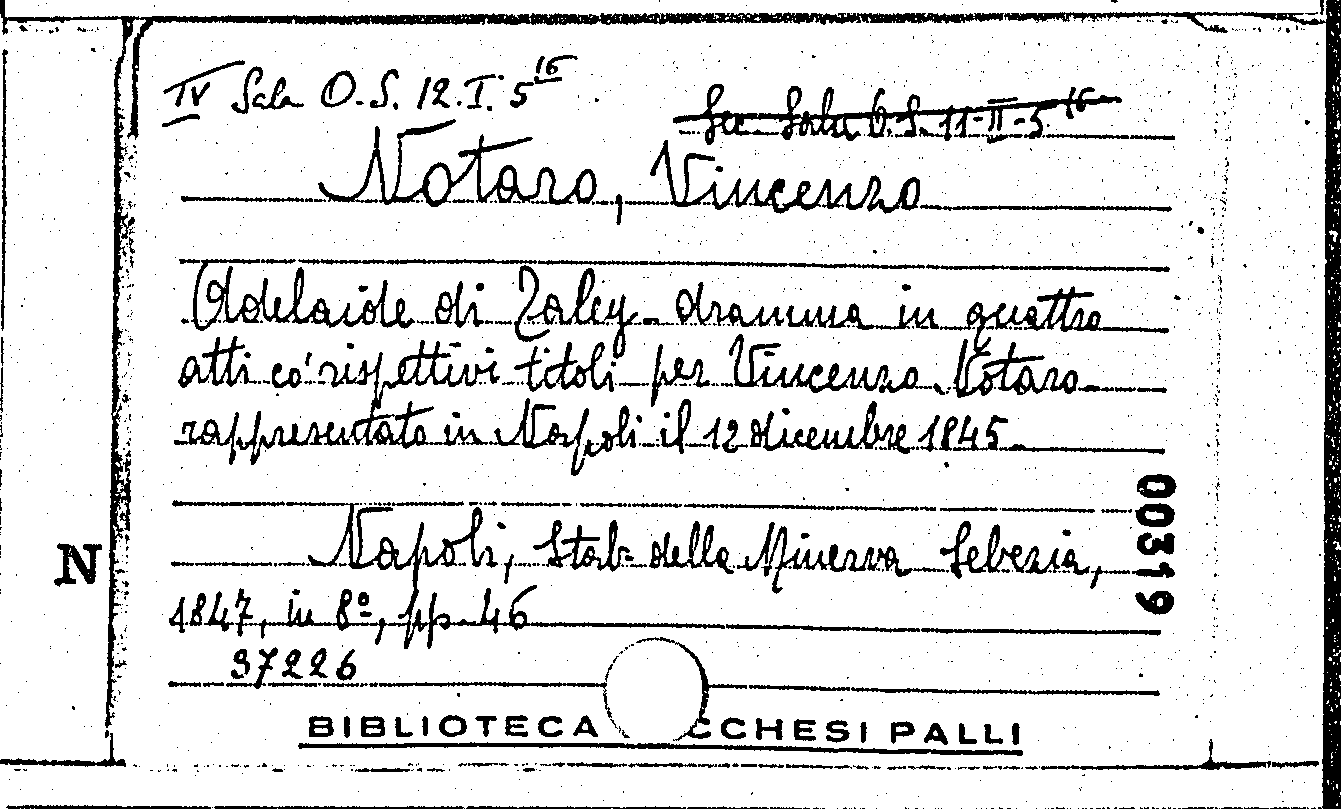 IV Sala O.S. 12.I.5^16
Sec. Sala O.S. 11-II-5^16
Notaro, Vincenzo
Adelaide di Zaley - dramma in quattro
atti co' rispettivi titoli per Vincenzo Notaro
rappresentato in Napoli il 12 dicembre 1845.
Napoli, Stab. della Minerva Sebezia,
1847, in 8º, pp. 46
37226
N
00319
BIBLIOTECA CCHESI PALLI